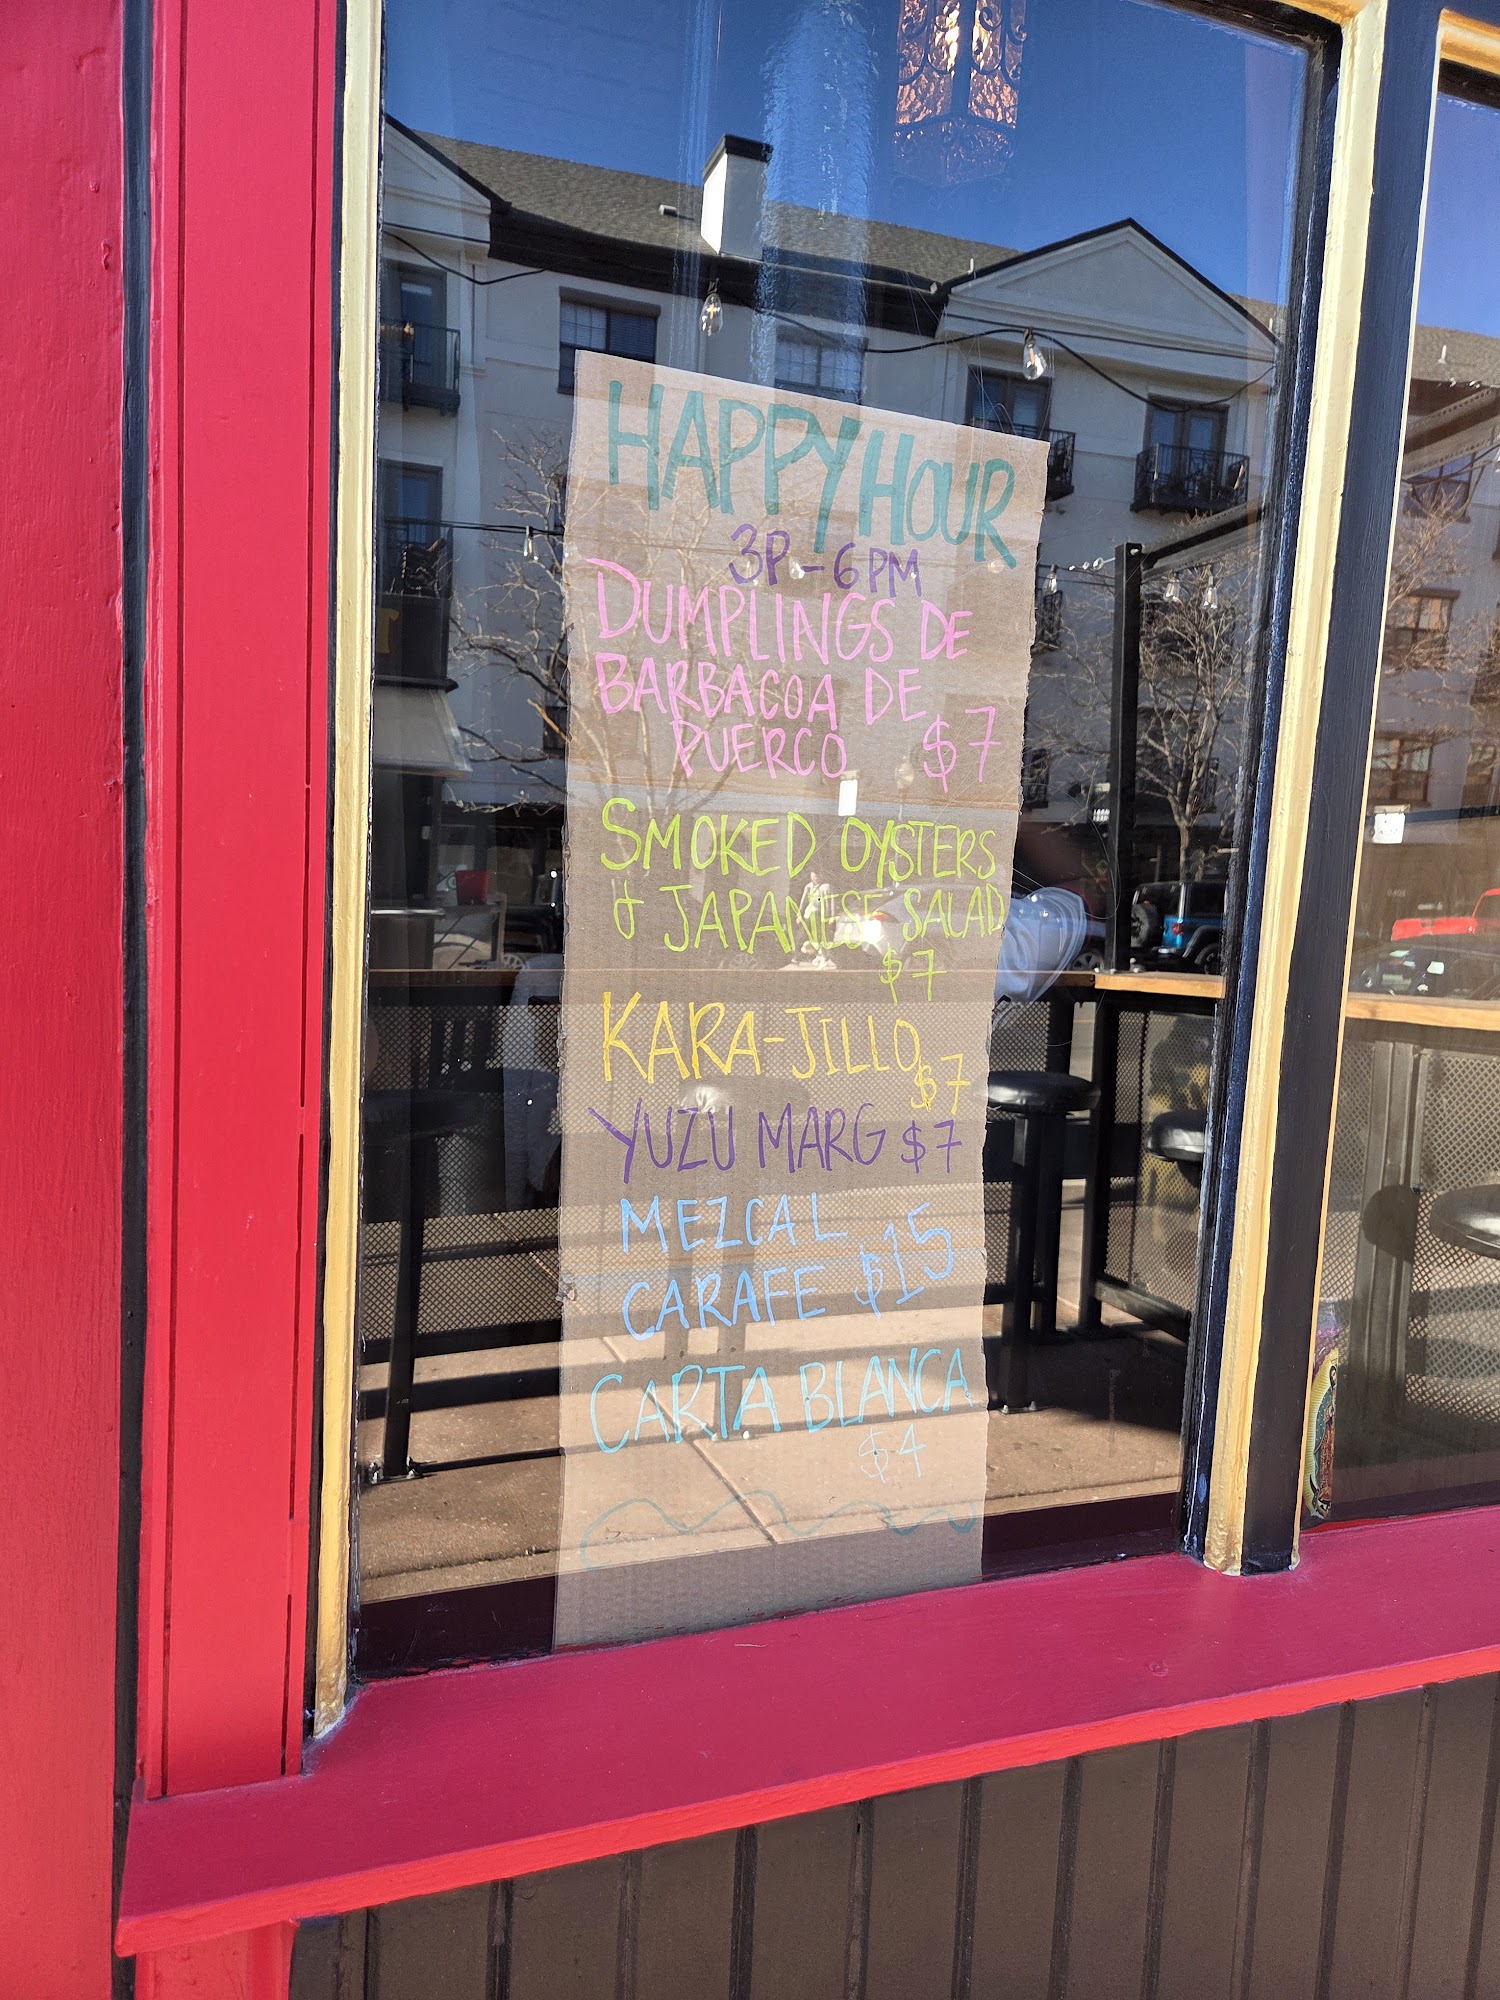 HAPPY HOUR
3P-6PM
DUMPLINGS DE
BARBACOA DE
PUERCO $7
SMOKED OYSTERS
& JAPANESE SALAD
$7
KARA-JILLO $7
YUZU MARG $7
MEZCAL
CARAFE $15
CARTA BLANCA
$4